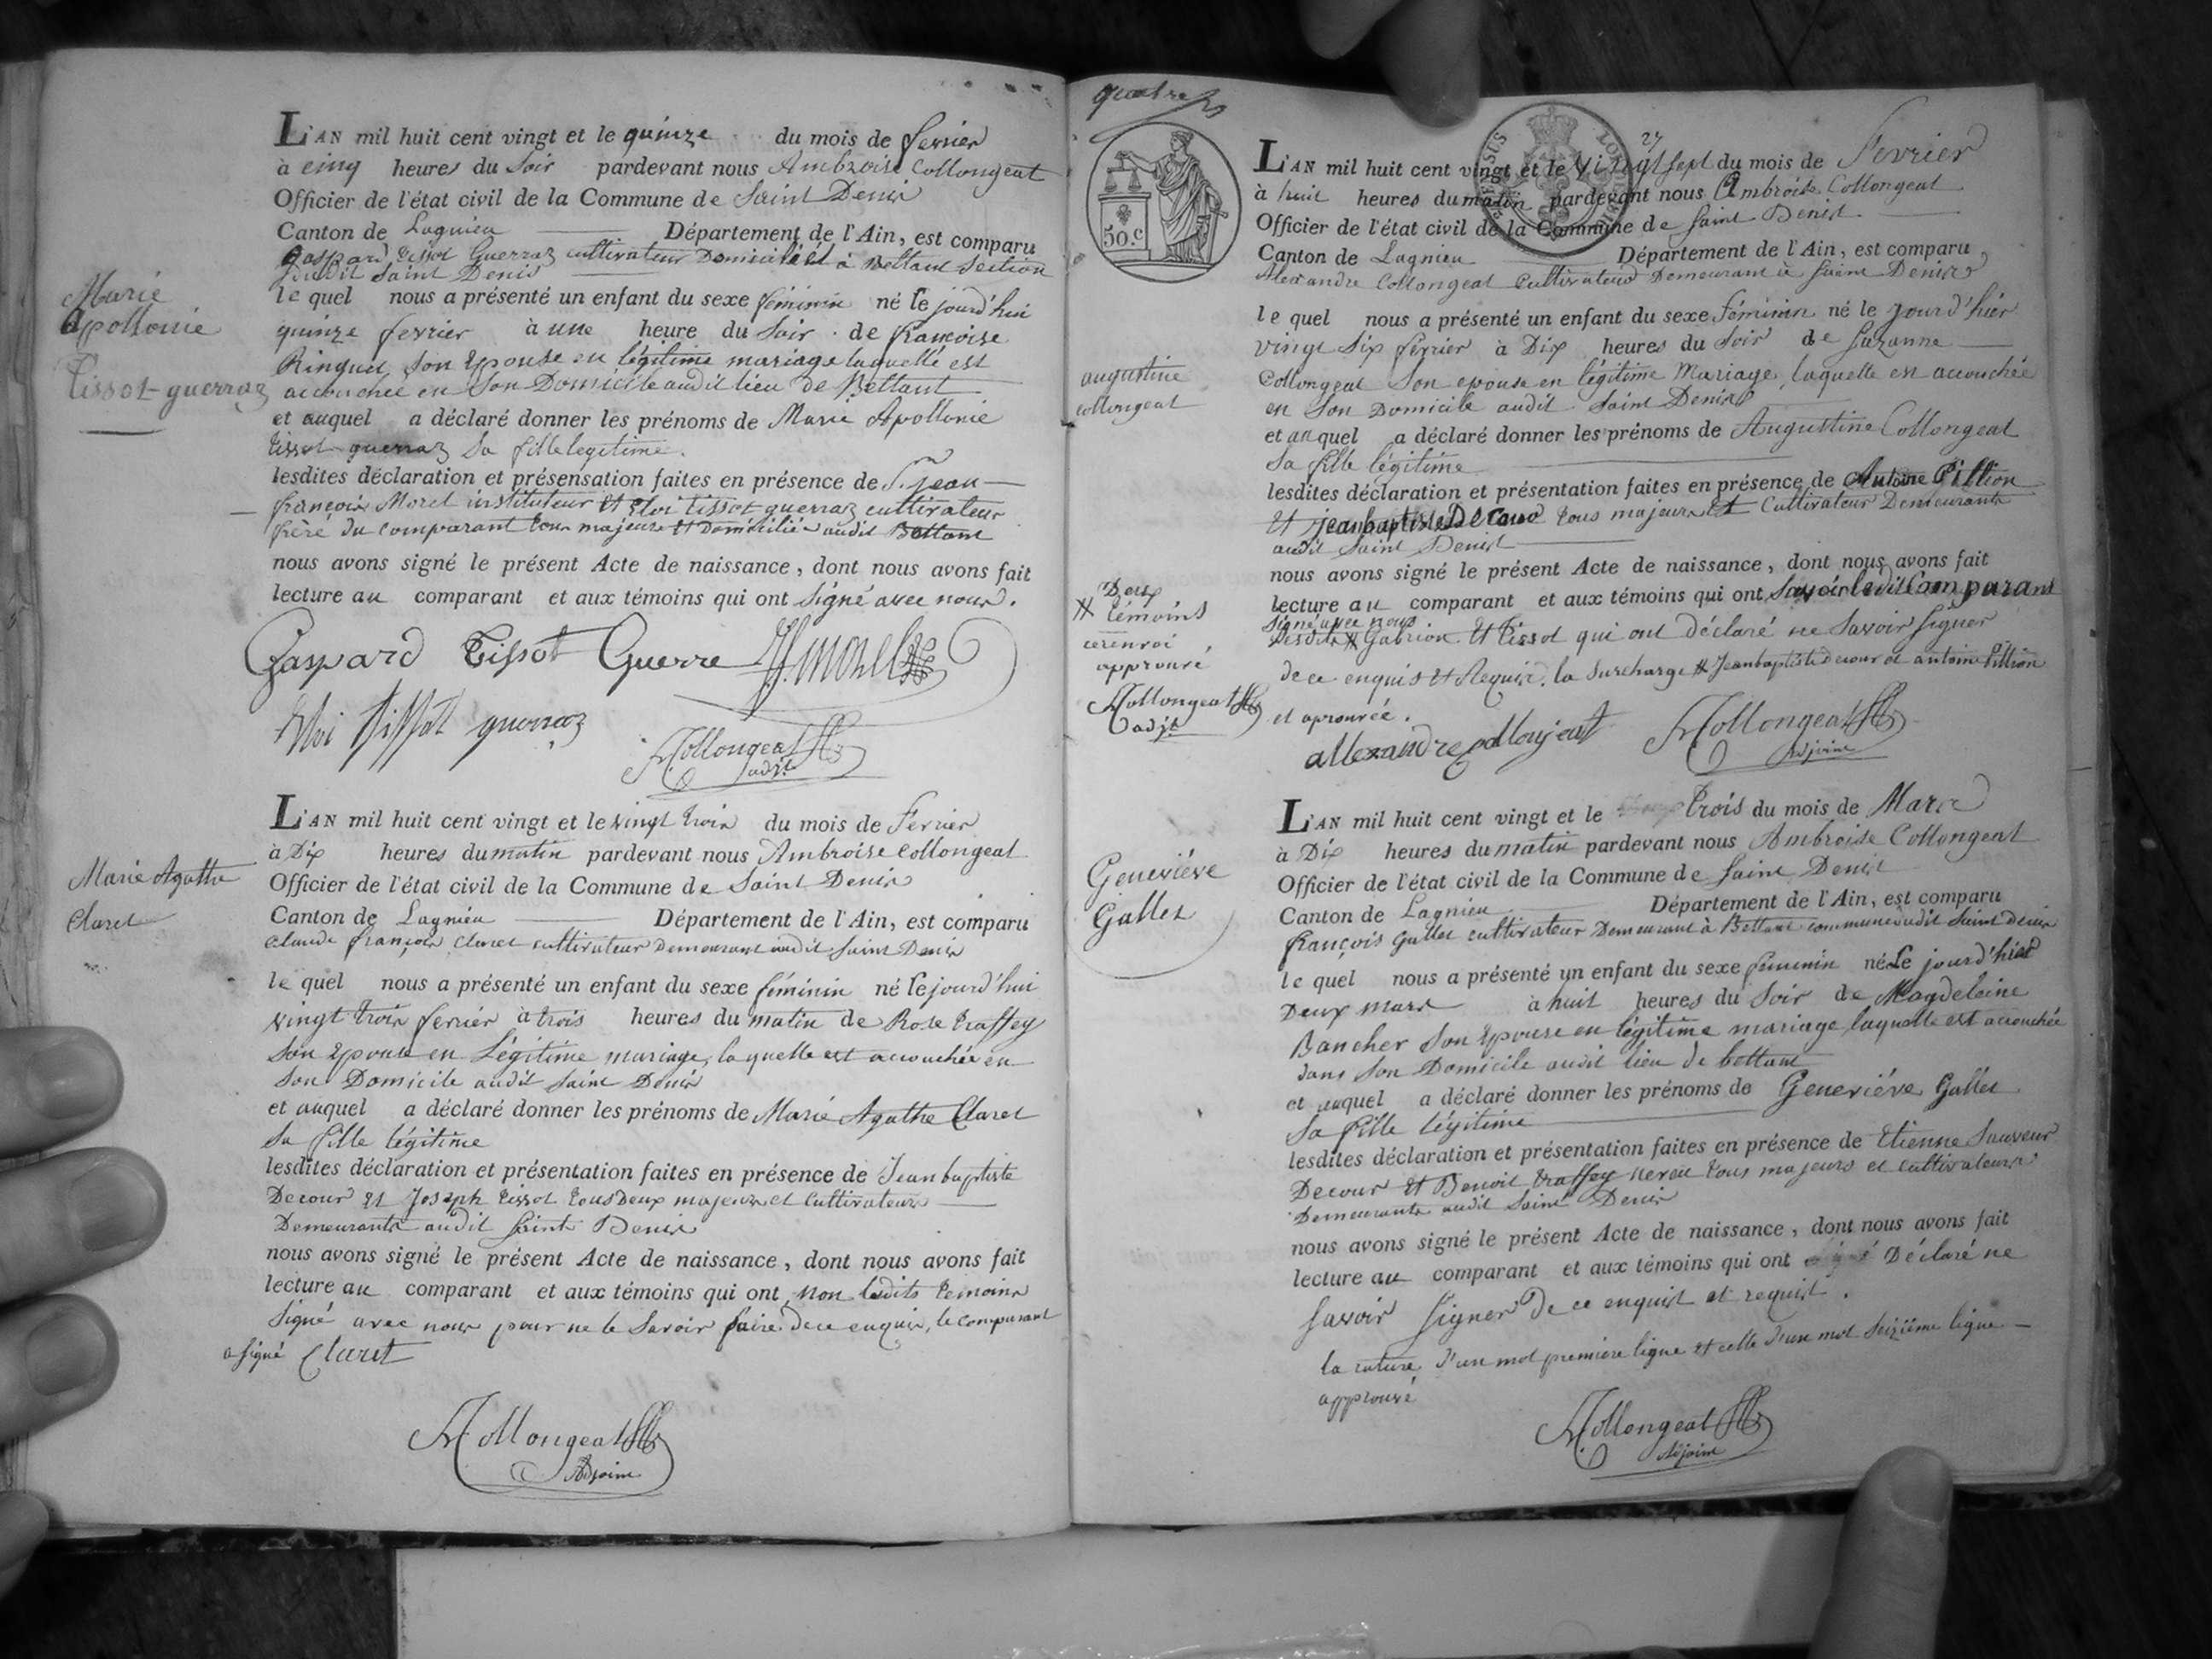 L'AN mil huit cent vingt et le quinze du mois de fevrier
à cinq heures du Soir pardevant nous Ambroise Collongeat
Officier de l'état civil de la Commune de Saint Denis
Canton de Lagnieu Département de l'Ain, est comparu
Gaspard tissot Guerraz cultivateur Domicilié à Bettant Section
dudit Saint Denis
le quel nous a présenté un enfant du sexe féminin né le jourd'hui
quinze fevrier à une heure du Soir de françoise
Ringuet son Epouse en légitime mariage laquelle est
accouchée en Son Domicile audit lieu de Bettant
et auquel a déclaré donner les prénoms de Marie Apollonie
tissot guerraz Sa fille legitime.
lesdites déclaration et présensation faites en présence de S. jean
françois Morel instituteur et Eloi tissot guerraz cultivateur
frère du comparant tous majeurs et Domiciliés audit Bettant
nous avons signé le présent Acte de naissance, dont nous avons fait
lecture au comparant et aux témoins qui ont Signé avec nous.
Gaspard Tissot Guerre J.f. morel
Eloi tissot guerraz
A Collongeat
adjt
Marie
Apollonie
Tissot guerraz
L'AN mil huit cent vingt et le vingt trois du mois de Fevrier
à Dix heures du matin pardevant nous Ambroise Collongeat
Officier de l'état civil de la Commune de Saint Denis
Canton de Lagnieu Département de l'Ain, est comparu
Claude françois Claret cultivateur Demeurant audit Saint Denis
le quel nous a présenté un enfant du sexe féminin né le jourd'hui
vingt trois fevrier à trois heures du matin de Rose traffey
Son Epouse en Légitime mariage, laquelle est accouchée en
Son Domicile audit Saint Denis
et auquel a déclaré donner les prénoms de Marie Agathe Claret
Sa fille légitime
lesdites déclaration et présentation faites en présence de Jeanbaptiste
Decour et Joseph tissot tous Deux majeurs et Cultivateurs
Demeurants audit Saint Denis
nous avons signé le présent Acte de naissance, dont nous avons fait
lecture au comparant et aux témoins qui ont, non lesdits temoins
Signé avec nous pour ne le Savoir faire de ce enquis, le comparant
a signé Claret
A Collongeat
Adjoint
Marie Agathe
Claret
quatre
50.c
L'AN mil huit cent vingt et le vingt sept du mois de Fevrier
27
à huit heures du matin pardevant nous Ambroise Collongeat
Officier de l'état civil de la Commune de Saint Denis
Canton de Lagnieu Département de l'Ain, est comparu
Alexandre Collongeat Cultivateur Demeurant à Saint Denis
le quel nous a présenté un enfant du sexe féminin né le jourd'hier
vingt Six fevrier à Dix heures du Soir de Suzanne
Collongeat Son epouse en légitime Mariage, laquelle est accouchée
en Son Domicile audit Saint Denis
et auquel a déclaré donner les prénoms de Augustine Collongeat
Sa fille légitime
lesdites déclaration et présentation faites en présence de Antoine Pittion
et jeanbaptiste Decour tous majeurs et Cultivateur Demeurants
audit Saint Denis
nous avons signé le présent Acte de naissance, dont nous avons fait
lecture au comparant et aux témoins qui ont Savoir ledit Comparant
Signé avec nous
lesdits # Gabrion et tissot qui ont déclaré ne Savoir Signer
de ce enquis et Requis. la Surcharge # Jeanbaptiste decour et antoine Pittion
et aprouvée.
allexandre collonjeat A Collongeat
Adjoint
augustine
collongeat
Deux
# témoins
ce renvoi
approuvé
A Collongeat
adjt
L'AN mil huit cent vingt et le trois du mois de Mars
à Dix heures du matin pardevant nous Ambroise Collongeat
Officier de l'état civil de la Commune de Saint Denis
Canton de Lagnieu Département de l'Ain, est comparu
françois Gallet cultivateur Demeurant à Bettant commune dudit Saint Denis
le quel nous a présenté un enfant du sexe féminin né Le jourd'hier
Deux mars à huit heures du Soir de Magdeleine
Bancher Son Epouse en légitime mariage, laquelle est accouchée
dans Son Domicile audit lieu de bettant
et auquel a déclaré donner les prénoms de Geneviéve Gallet
Sa fille légitime
lesdites déclaration et présentation faites en présence de Etienne Sauveur
Decour et Benoit traffey neveu tous majeurs et cultivateurs
Demeurants audit Saint Denis
nous avons signé le présent Acte de naissance, dont nous avons fait
lecture au comparant et aux témoins qui ont Déclaré ne
Savoir Signer De ce enquist et requist.
la rature d'un mot premiere ligne et celle d'un mot Seizième ligne
approuvé
A Collongeat
Adjoint
Geneviéve
Gallet